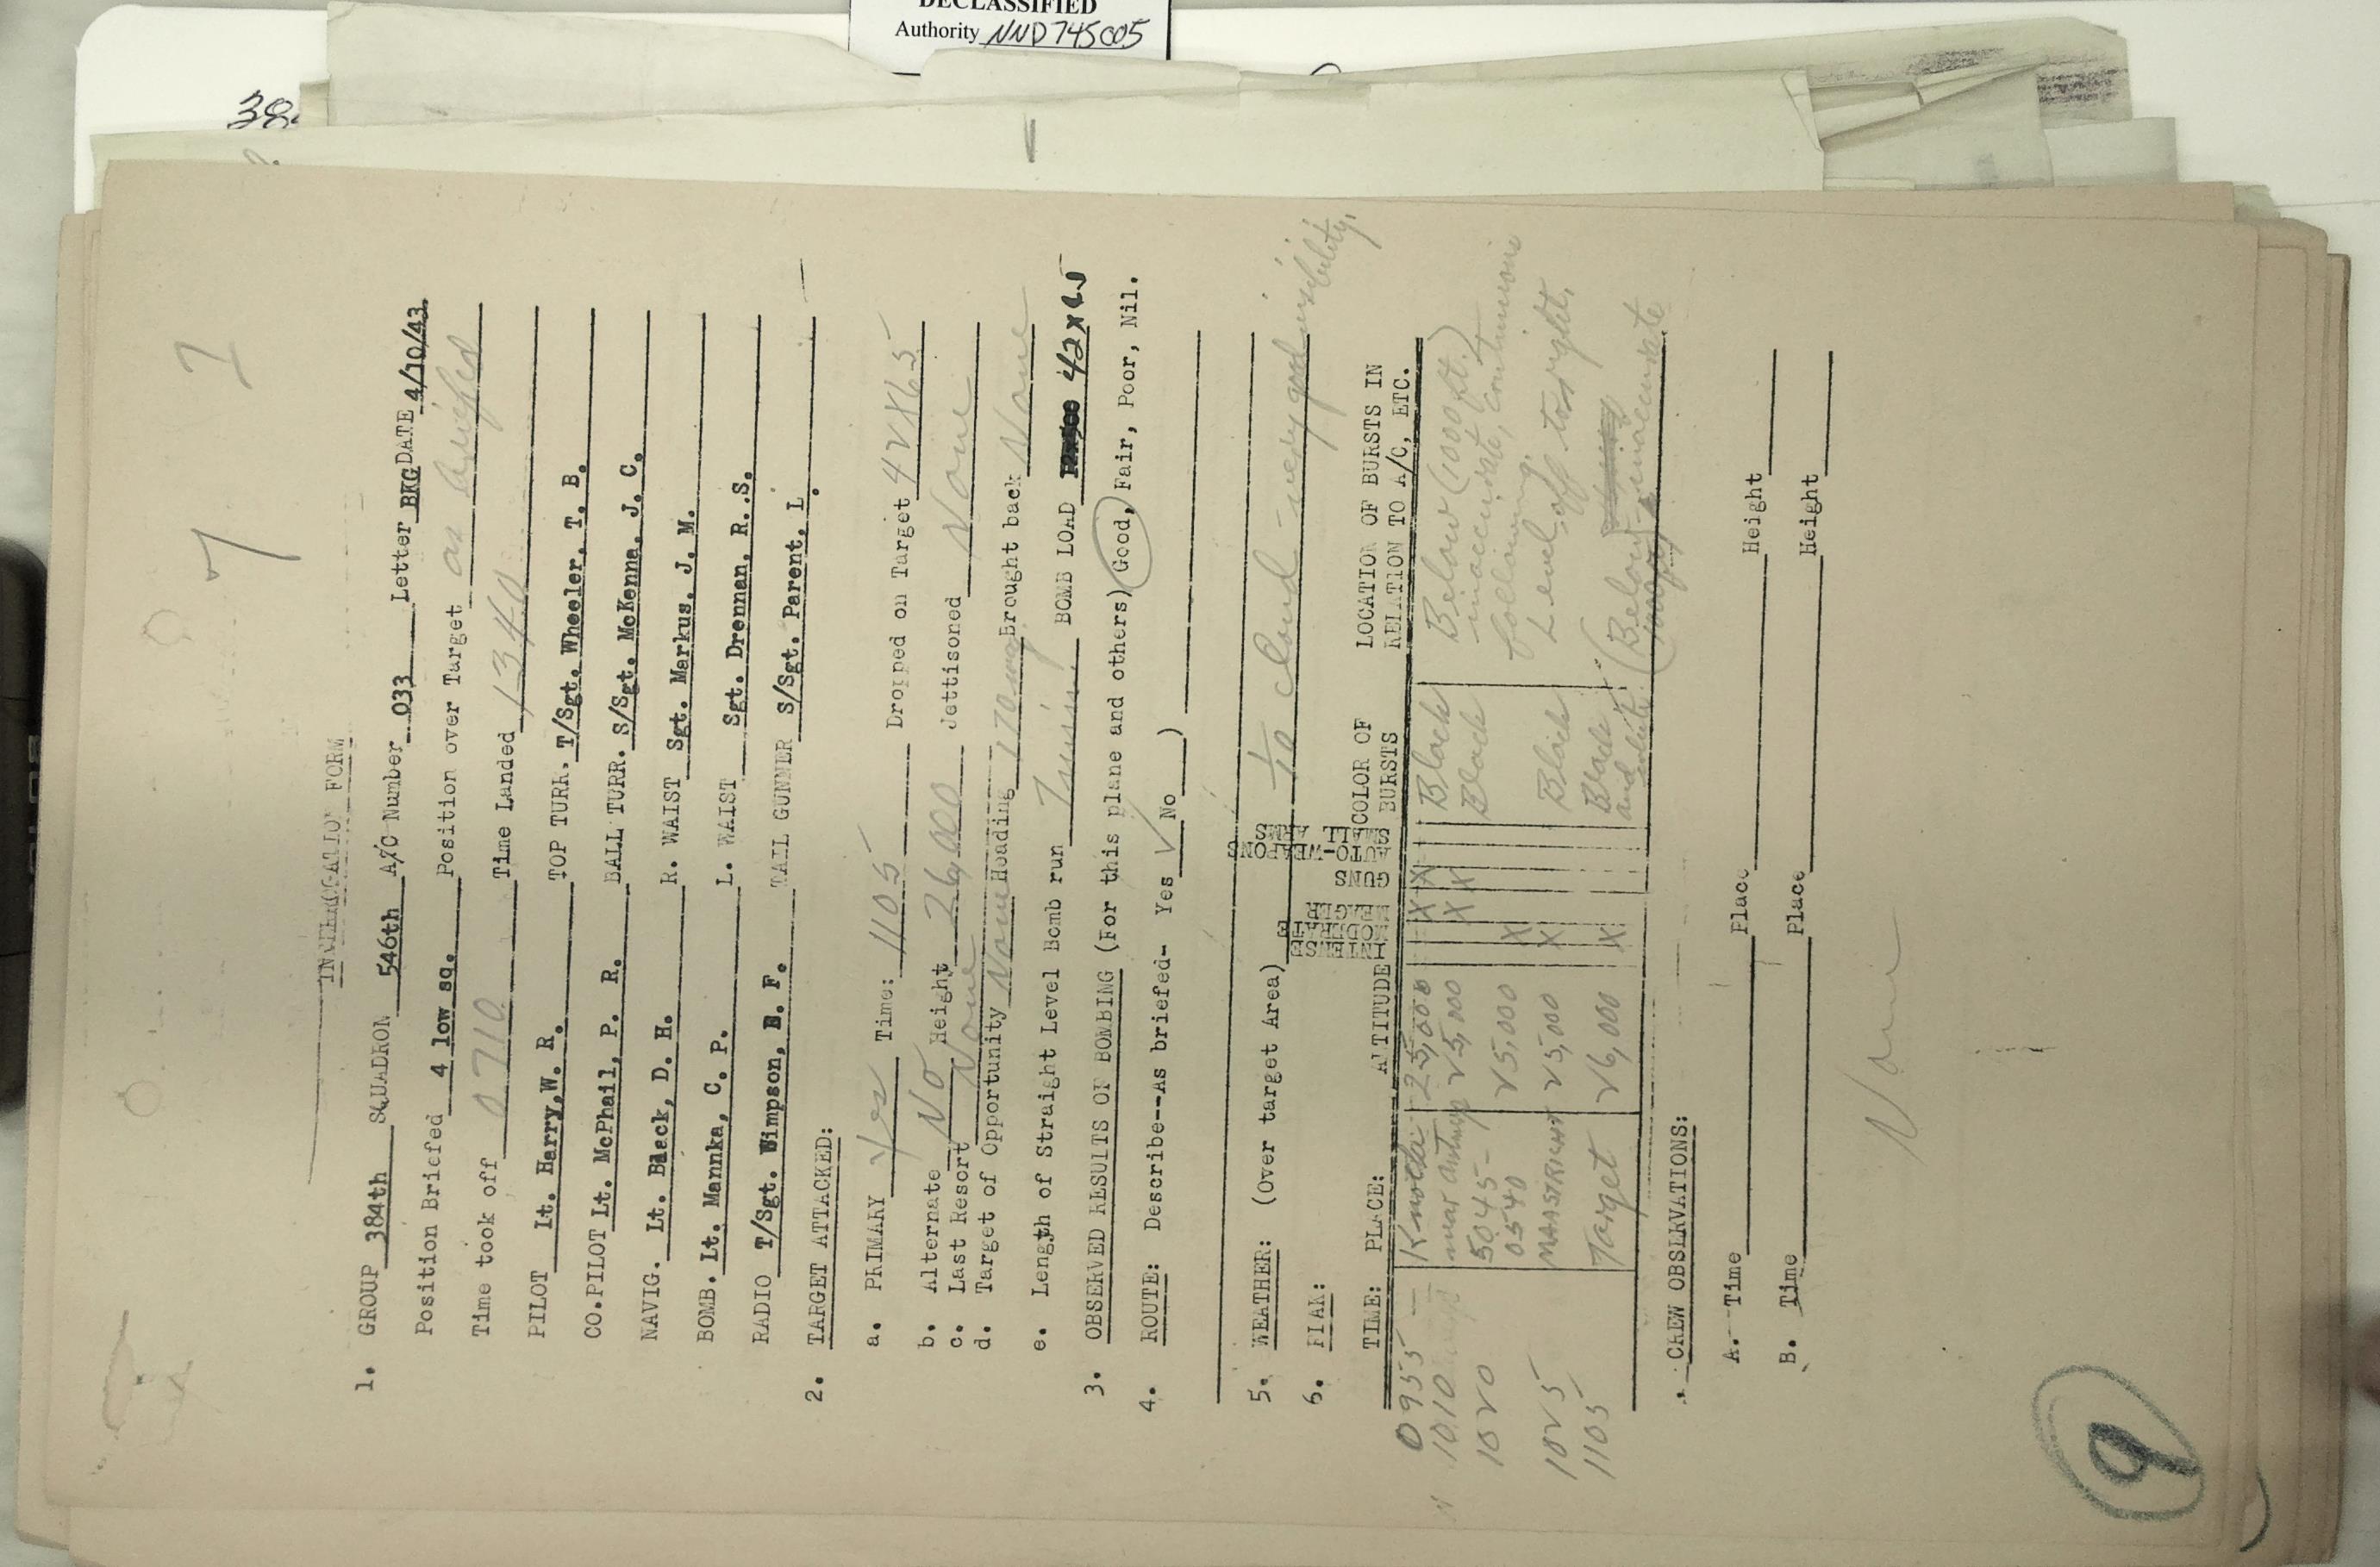 DECLASSIFIED
Authority NND745005
38
7
INTERROGATION FORM
1. GROUP 384th SQUADRON 546th A/C Number 033 Letter BKG DATE 4/10/43
Position Briefed 4 low sq. Position over Target as briefed
Time took off 0710 Time Landed 1340
PILOT Lt. Harry,W. R. TOP TURR. T/Sgt. Wheeler, T. B.
CO.PILOT Lt. McPhail, P. R. BALL TURR. S/Sgt. McKenna, J. C.
NAVIG. Lt. Black, D. H. R. WAIST Sgt. Markus, J. M.
BOMB. Lt. Mannka, C. P. L. WAIST Sgt. Drennan, R.S.
RADIO T/Sgt. Wimpson, B. F. TAIL GUNNER S/Sgt. Parent, L.
2. TARGET ATTACKED:
a. PRIMARY Yes Time: 1105 Dropped on Target 42X65
b. Alternate No Height 26,000 Jettisoned None
c. Last Resort None
d. Target of Opportunity None Heading 170 mag Brought back None
e. Length of Straight Level Bomb run 7 min. BOMB LOAD 42x65
3. OBSERVED RESULTS OF BOMBING (For this plane and others) Good, Fair, Poor, Nil.
4. ROUTE: Describe--As briefed- Yes ✓ No )
5. WEATHER: (Over target Area) 1/10 cloud - very good visibility,
6. FLAK:
TIME: PLACE: ALTITUDE INTENSE MODERATE MEAGER GUNS AUTO-WEAPONS SMALL ARMS COLOR OF BURSTS LOCATION OF BURSTS IN RELATION TO A/C, ETC.
0955 - Knocke 25,000 X X Black Below (1000 ft.)
1010 near Antwerp 25,000 X X Black inaccurate, continuous following.
1020 5045 - 0540 25,000 X
1025 MAASTRICHT 25,000 X Black Level, off to right.
1105 Target 26,000 X Black and white (Below - inaccurate
CREW OBSERVATIONS:
A. Time Place Height
B. Time Place Height
None
9